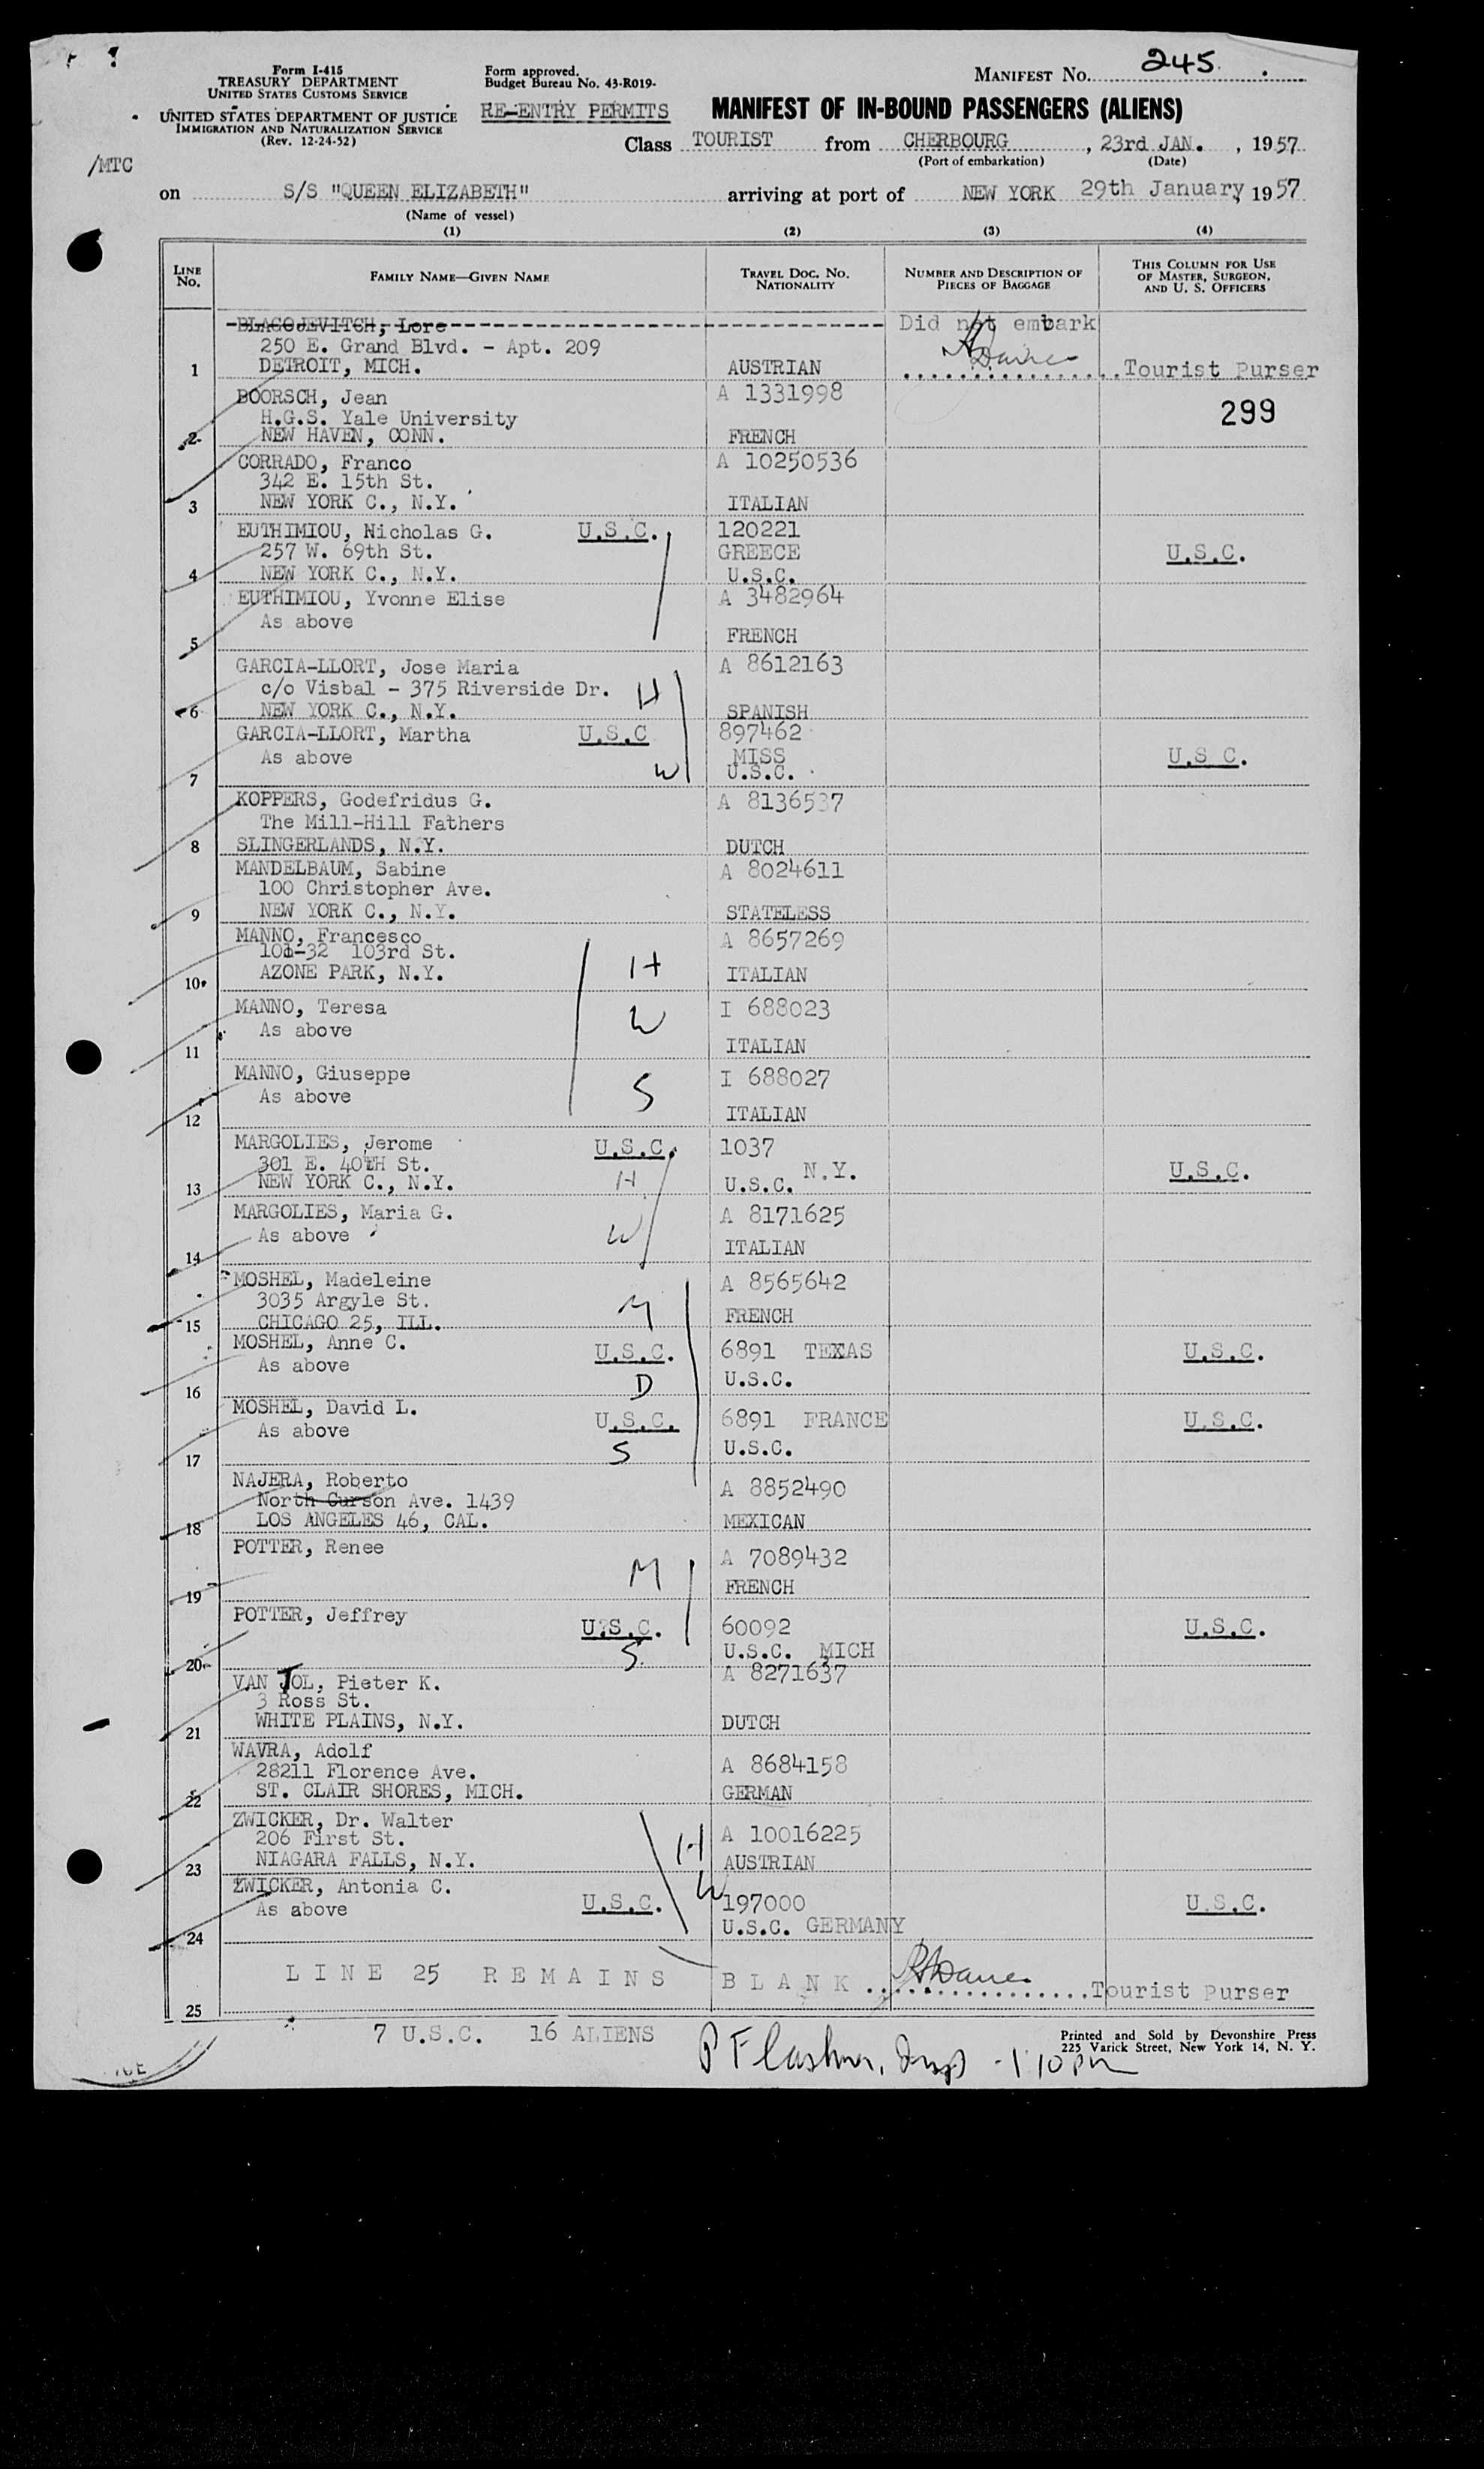 245
Form I-415
TREASURY DEPARTMENT
UNITED STATES CUSTOMS SERVICE
UNITED STATES DEPARTMENT OF JUSTICE
IMMIGRATION AND NATURALIZATION SERVICE
(Rev. 12-24-52)
Form approved.
Budget Bureau No. 43-R019-
RE-ENTRY PERMITS
MANIFEST NO.
MANIFEST OF IN-BOUND PASSENGERS (ALIENS)
/MTC
Class TOURIST from CHERBOURG, 23rd JAN., 1957
(Port of embarkation) (Date)
on S/S "QUEEN ELIZABETH" arriving at port of NEW YORK 29th January, 1957
(Name of vessel)
(1) (2) (3) (4)
LINE NO. FAMILY NAME—GIVEN NAME TRAVEL DOC. NO. NATIONALITY NUMBER AND DESCRIPTION OF PIECES OF BAGGAGE THIS COLUMN FOR USE OF MASTER, SURGEON, AND U. S. OFFICERS
BLAGOJEVITCH, Lore Did not embark
250 E. Grand Blvd. - Apt. 209
1 DETROIT, MICH. AUSTRIAN Tourist Purser
BOORSCH, Jean A 1331998 299
H.G.S. Yale University
2 NEW HAVEN, CONN. FRENCH
CORRADO, Franco A 10250536
342 E. 15th St.
3 NEW YORK C., N.Y. ITALIAN
EUTHIMIOU, Nicholas G. U.S.C. 120221
257 W. 69th St. GREECE U.S.C.
4 NEW YORK C., N.Y. U.S.C.
EUTHIMIOU, Yvonne Elise A 3482964
As above
5 FRENCH
GARCIA-LLORT, Jose Maria A 8612163
c/o Visbal - 375 Riverside Dr. H
6 NEW YORK C., N.Y. SPANISH
GARCIA-LLORT, Martha U.S.C 897462
As above MISS U.S C.
7 W U.S.C.
KOPPERS, Godefridus G. A 8136537
The Mill-Hill Fathers
8 SLINGERLANDS, N.Y. DUTCH
MANDELBAUM, Sabine A 8024611
100 Christopher Ave.
9 NEW YORK C., N.Y. STATELESS
MANNO, Francesco A 8657269
101-32 103rd St. H
10 AZONE PARK, N.Y. ITALIAN
MANNO, Teresa I 688023
As above W
11 ITALIAN
MANNO, Giuseppe I 688027
As above S
12 ITALIAN
MARGOLIES, Jerome U.S.C. 1037
301 E. 40TH St. N.Y. U.S.C.
13 NEW YORK C., N.Y. H U.S.C.
MARGOLIES, Maria G. A 8171625
As above W
14 ITALIAN
MOSHEL, Madeleine A 8565642
3035 Argyle St. M
15 CHICAGO 25, ILL. FRENCH
MOSHEL, Anne C. U.S.C. 6891 TEXAS U.S.C.
As above
16 D U.S.C.
MOSHEL, David L. U.S.C. 6891 FRANCE U.S.C.
As above
17 S U.S.C.
NAJERA, Roberto A 8852490
North Curson Ave. 1439
18 LOS ANGELES 46, CAL. MEXICAN
POTTER, Renee A 7089432
M
19 FRENCH
POTTER, Jeffrey U.S.C. 60092 U.S.C.
20 S U.S.C. MICH
VAN TOL, Pieter K. A 8271637
3 Ross St.
21 WHITE PLAINS, N.Y. DUTCH
WAVRA, Adolf A 8684158
28211 Florence Ave.
22 ST. CLAIR SHORES, MICH. GERMAN
ZWICKER, Dr. Walter A 10016225
206 First St. H
23 NIAGARA FALLS, N.Y. AUSTRIAN
ZWICKER, Antonia C. W
As above U.S.C. 197000 U.S.C.
24 U.S.C. GERMANY
LINE 25 REMAINS BLANK Tourist Purser
25
7 U.S.C. 16 ALIENS
Printed and Sold by Devonshire Press
225 Varick Street, New York 14, N. Y.
1:10 PM